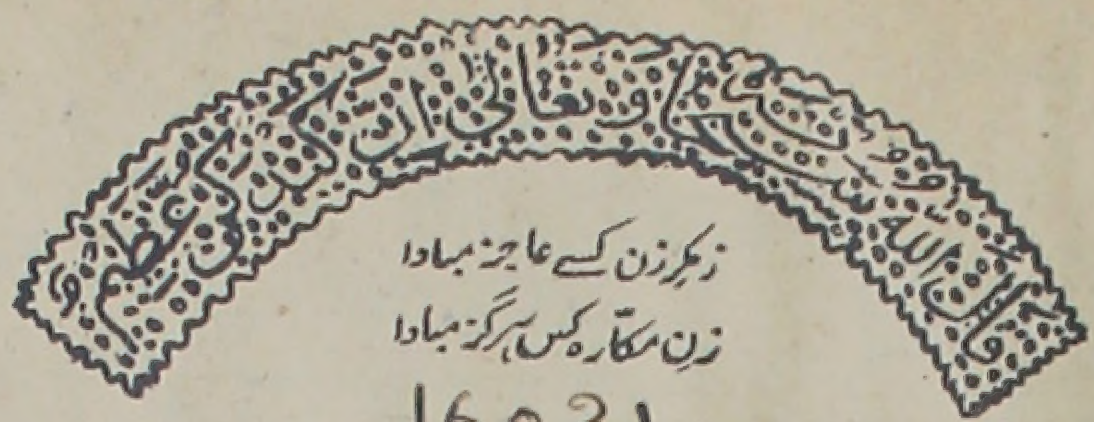 قال الله سبحانه وتعالى ان كيدكن عظيم
ز مکر زن کسے عاجز مبادا
زن مکّاره کس ہرگز مبادا